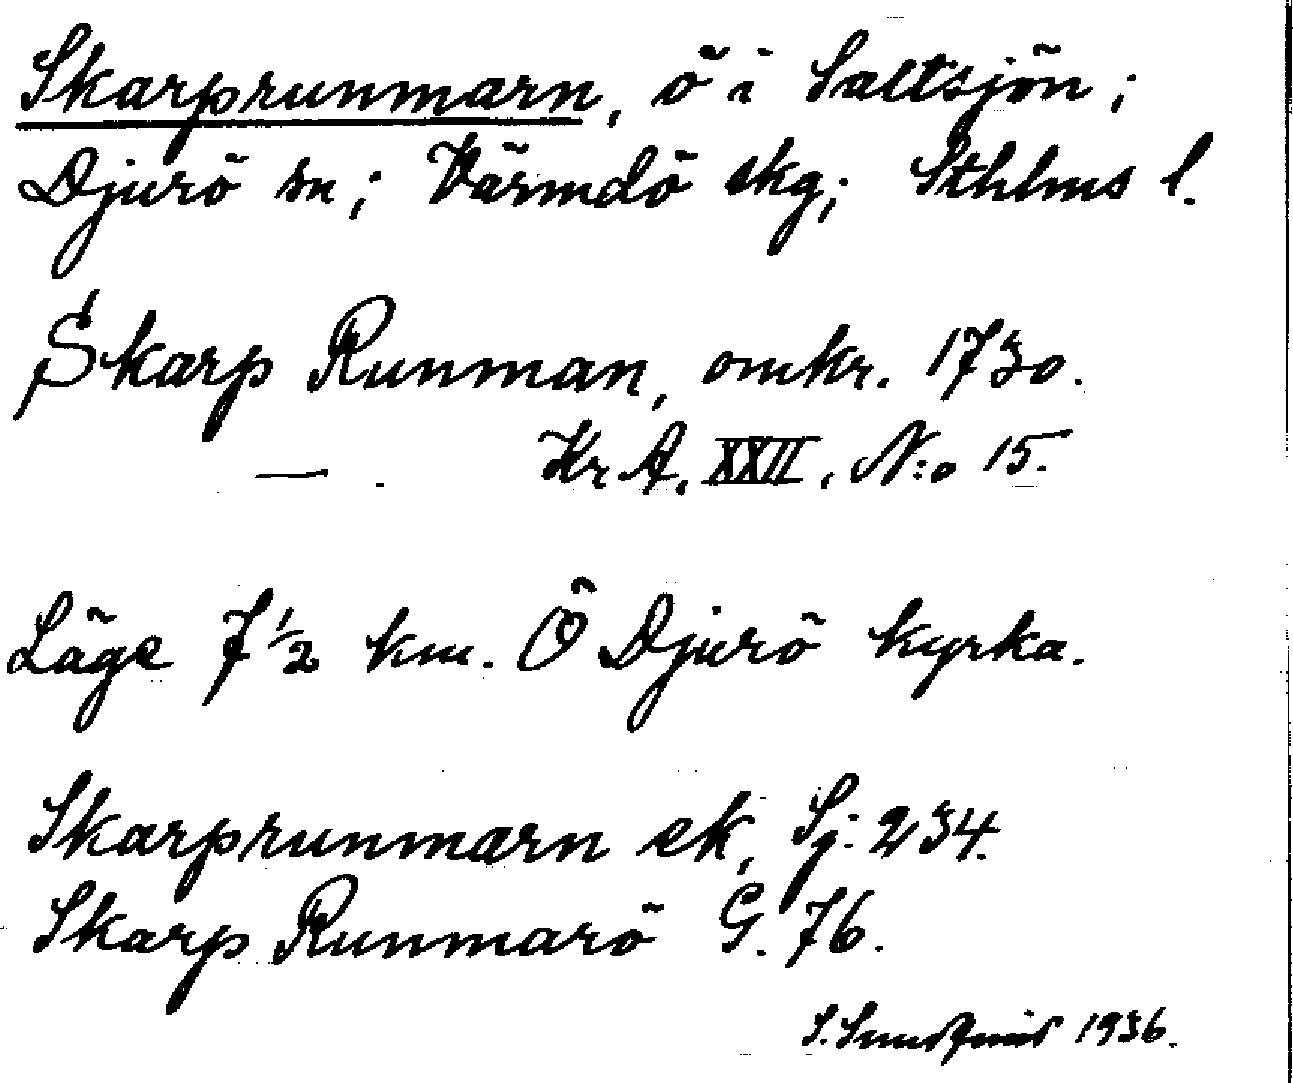 Skarprunmarn, ö i Saltsjön;
Djurö sn; Värmdö skg; Sthlms l.
Skarp Runman, omkr. 1730.
— . Kr A. XXII, N:o 15.
Läge 7 1/2 km. Ö Djurö kyrka.
Skarprunmarn ek, Sj: 234.
Skarp Runmarö G. 76.
S. 1936.